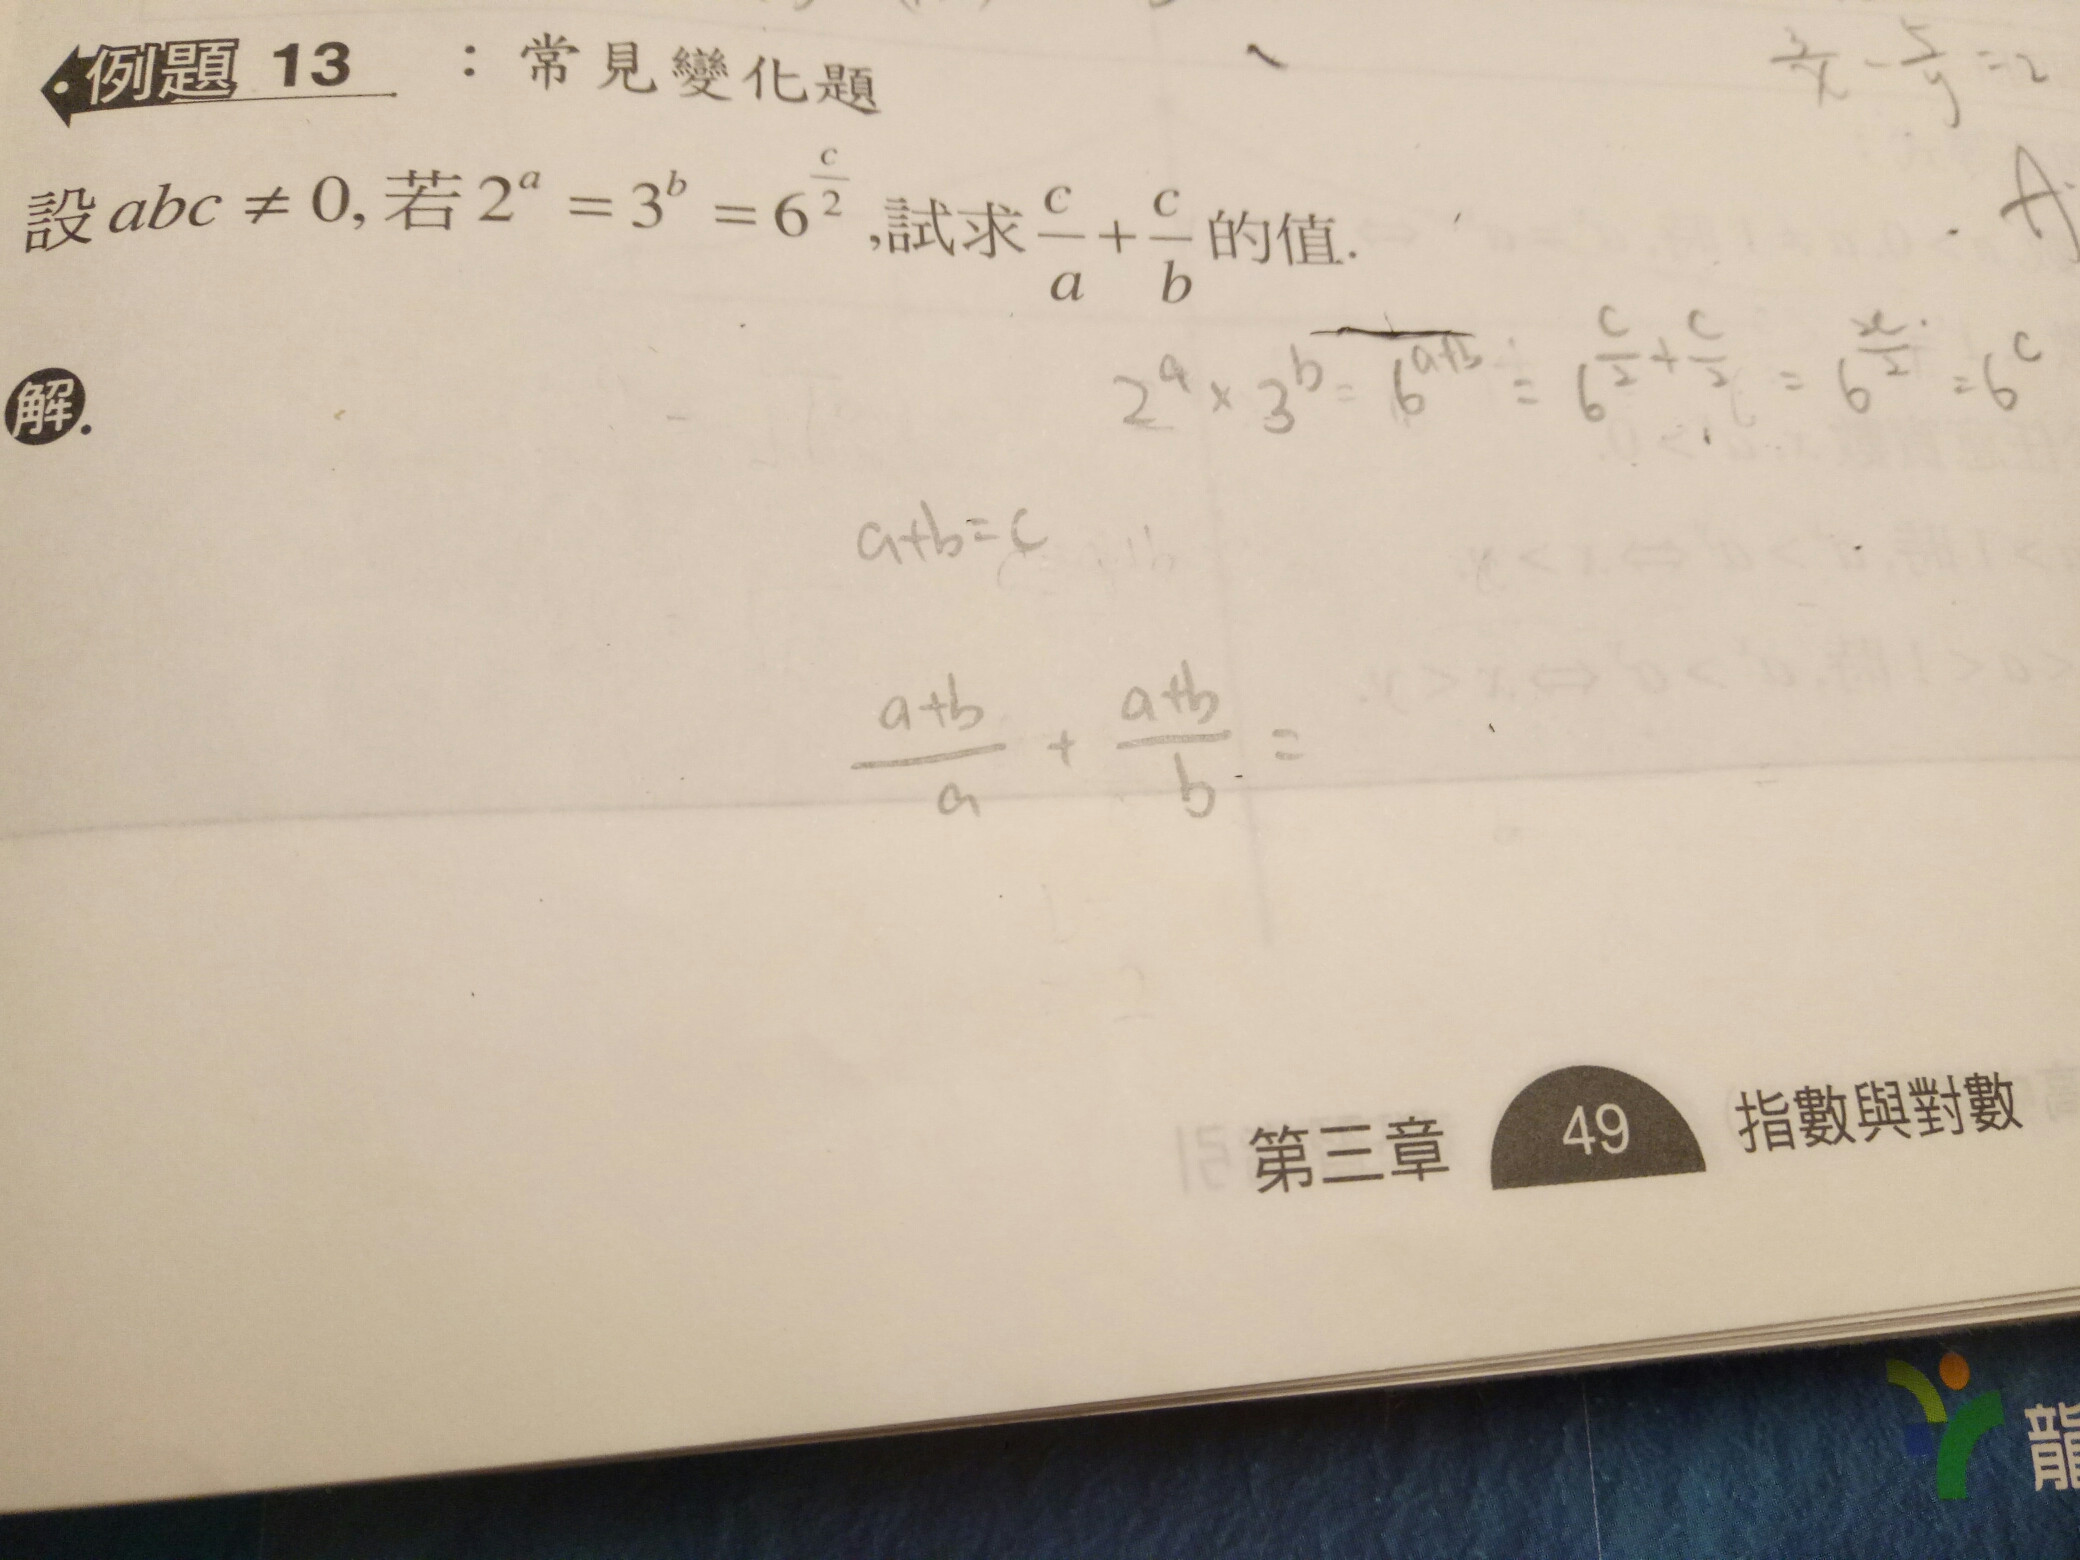 例題 13 ：常見變化題
3/x - 5/y = 2
設 abc ≠ 0, 若 2^a = 3^b = 6^(c/2) ,試求 c/a + c/b 的值.
解.
2^a × 3^b = 6^(a+b) = 6^(c/2 + c/2) = 6^(2c/2) = 6^c
a+b=c
(a+b)/a + (a+b)/b =
第三章 49 指數與對數
龍